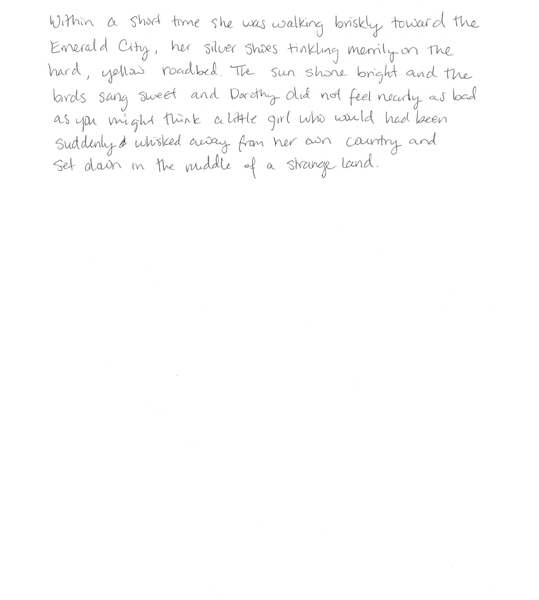 Within a short time she was walking briskly toward the
Emerald City, her silver shoes tinkling merrily on the
hard, yellow roadbed. The sun shone bright and the
birds sang sweet and Dorothy did not feel nearly as bad
as you might think a little girl who would had been
suddenly whisked away from her own country and
set down in the middle of a strange land.